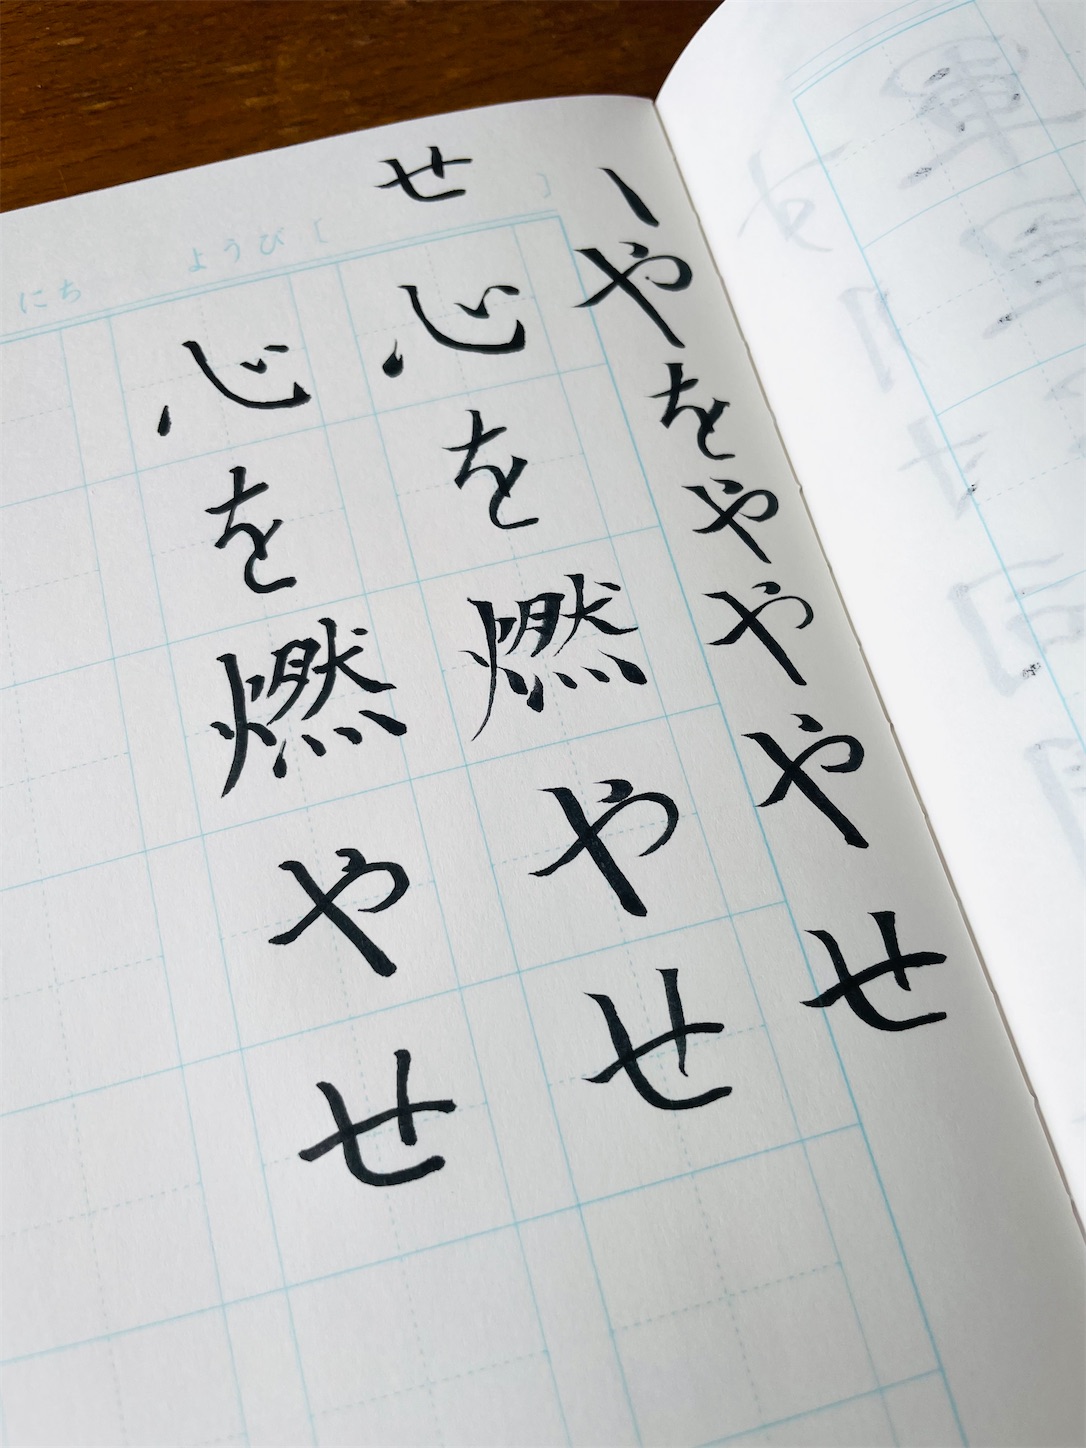 やをやややせ
せ
にち ようび [ ]
心を燃やせ
心を燃やせ